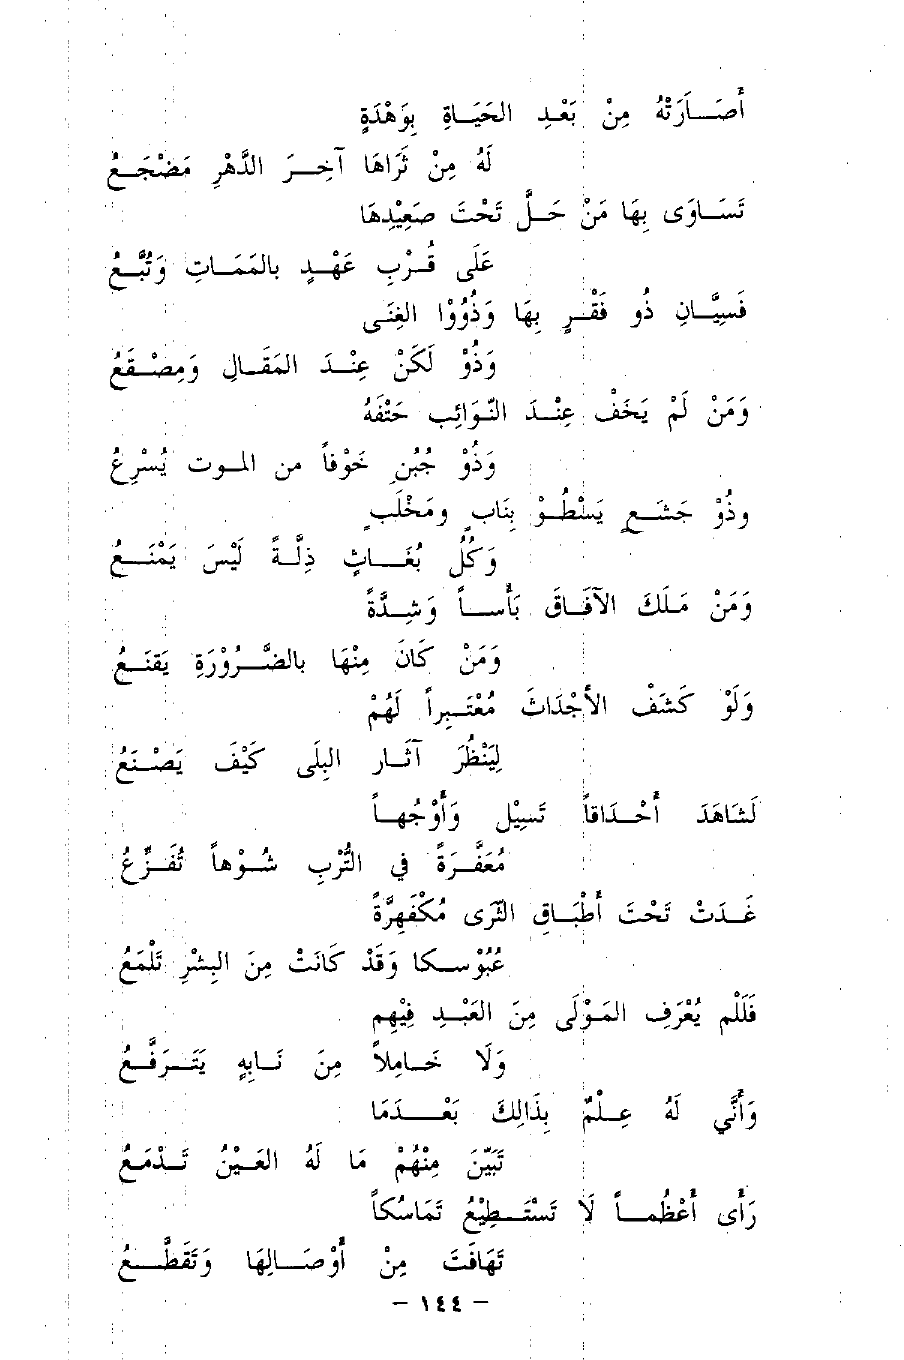 أَصَــارَتْهُ مِنْ بَعْدِ الحَيَــاةِ بِوَهْدَةٍ
لَهُ مِنْ ثَرَاهَا آخِــرَ الدَّهْرِ مَضْجَــعُ
تَسَــاوَى بِهَا مَنْ حَــلَّ تَحْتَ صَعِيْدِهَا
عَلَى قُــرْبِ عَهْــدٍ بالمَمَــاتِ وَتُبَّــعُ
فَسِيَّــانِ ذُو فَقْــرٍ بِهَا وَذُوُوْا الغِنَــى
وَذُوْ لَكَنْ عِنْــدَ المَقَــالِ وَمِصْــقَعُ
وَمَنْ لَمْ يَخَفْ عِنْــدَ النَّــوَائِبِ حَتْفَهُ
وَذُوْ جُبُنٍ خَوْفاً من المــوت يُسْــرِعُ
وذُوْ جَشَــعٍ يَسْطُــوْ بِنَابٍ ومَخْلَبٍ
وَكُلُّ بُغَــاثٍ ذِلَّــةً لَيْسَ يَمْنَــعُ
وَمَنْ مَــلَكَ الآفَــاقَ بَأْســاً وَشِــدَّةً
وَمَنْ كَانَ مِنْهَا بالضَّــرُوْرَةِ يَقْنَــعُ
وَلَوْ كَشَفْ الأَجْدَاثَ مُعْتَــبِراً لَهُمْ
لِيَنْظُرَ آثَــار البِلَى كَيْفَ يَصْــنَعُ
لَشَاهَدَ أَحْــدَاقاً تَسِيْل وَأَوْجُهــاً
مُعَفَّــرَةً في التُّرْبِ شُــوْهاً تُفَــزِّعُ
غَــدَتْ تَحْتَ أَطْبَــاقِ الثَّرَى مُكْفَهِرَّةً
عَبُوْســكا وَقَدْ كَانَتْ مِنَ البِشْرِ تَلْمَعُ
فَلَلْم يُعْرَفِ المَــوْلَى مِنَ العَبْــدِ فِيْهِم
وَلَا خَــامِلاً مِنَ نَــابِهٍ يَتَــرَفَّــعُ
وَأَنَّي لَهُ عِــلْمٌ بِذَالِكَ بَعْــدَمَا
تَبَيّنَ مِنْهُمْ مَا لَهُ العَــيْنُ تَــدْمَــعُ
رَأَى أَعْظُمــاً لَا تَسْتَــطِيْعُ تَمَاسُكاً
تَهَافَتَ مِنْ أَوْصَــالِهَا وَتَقَطَّــعُ
– ١٤٤ –